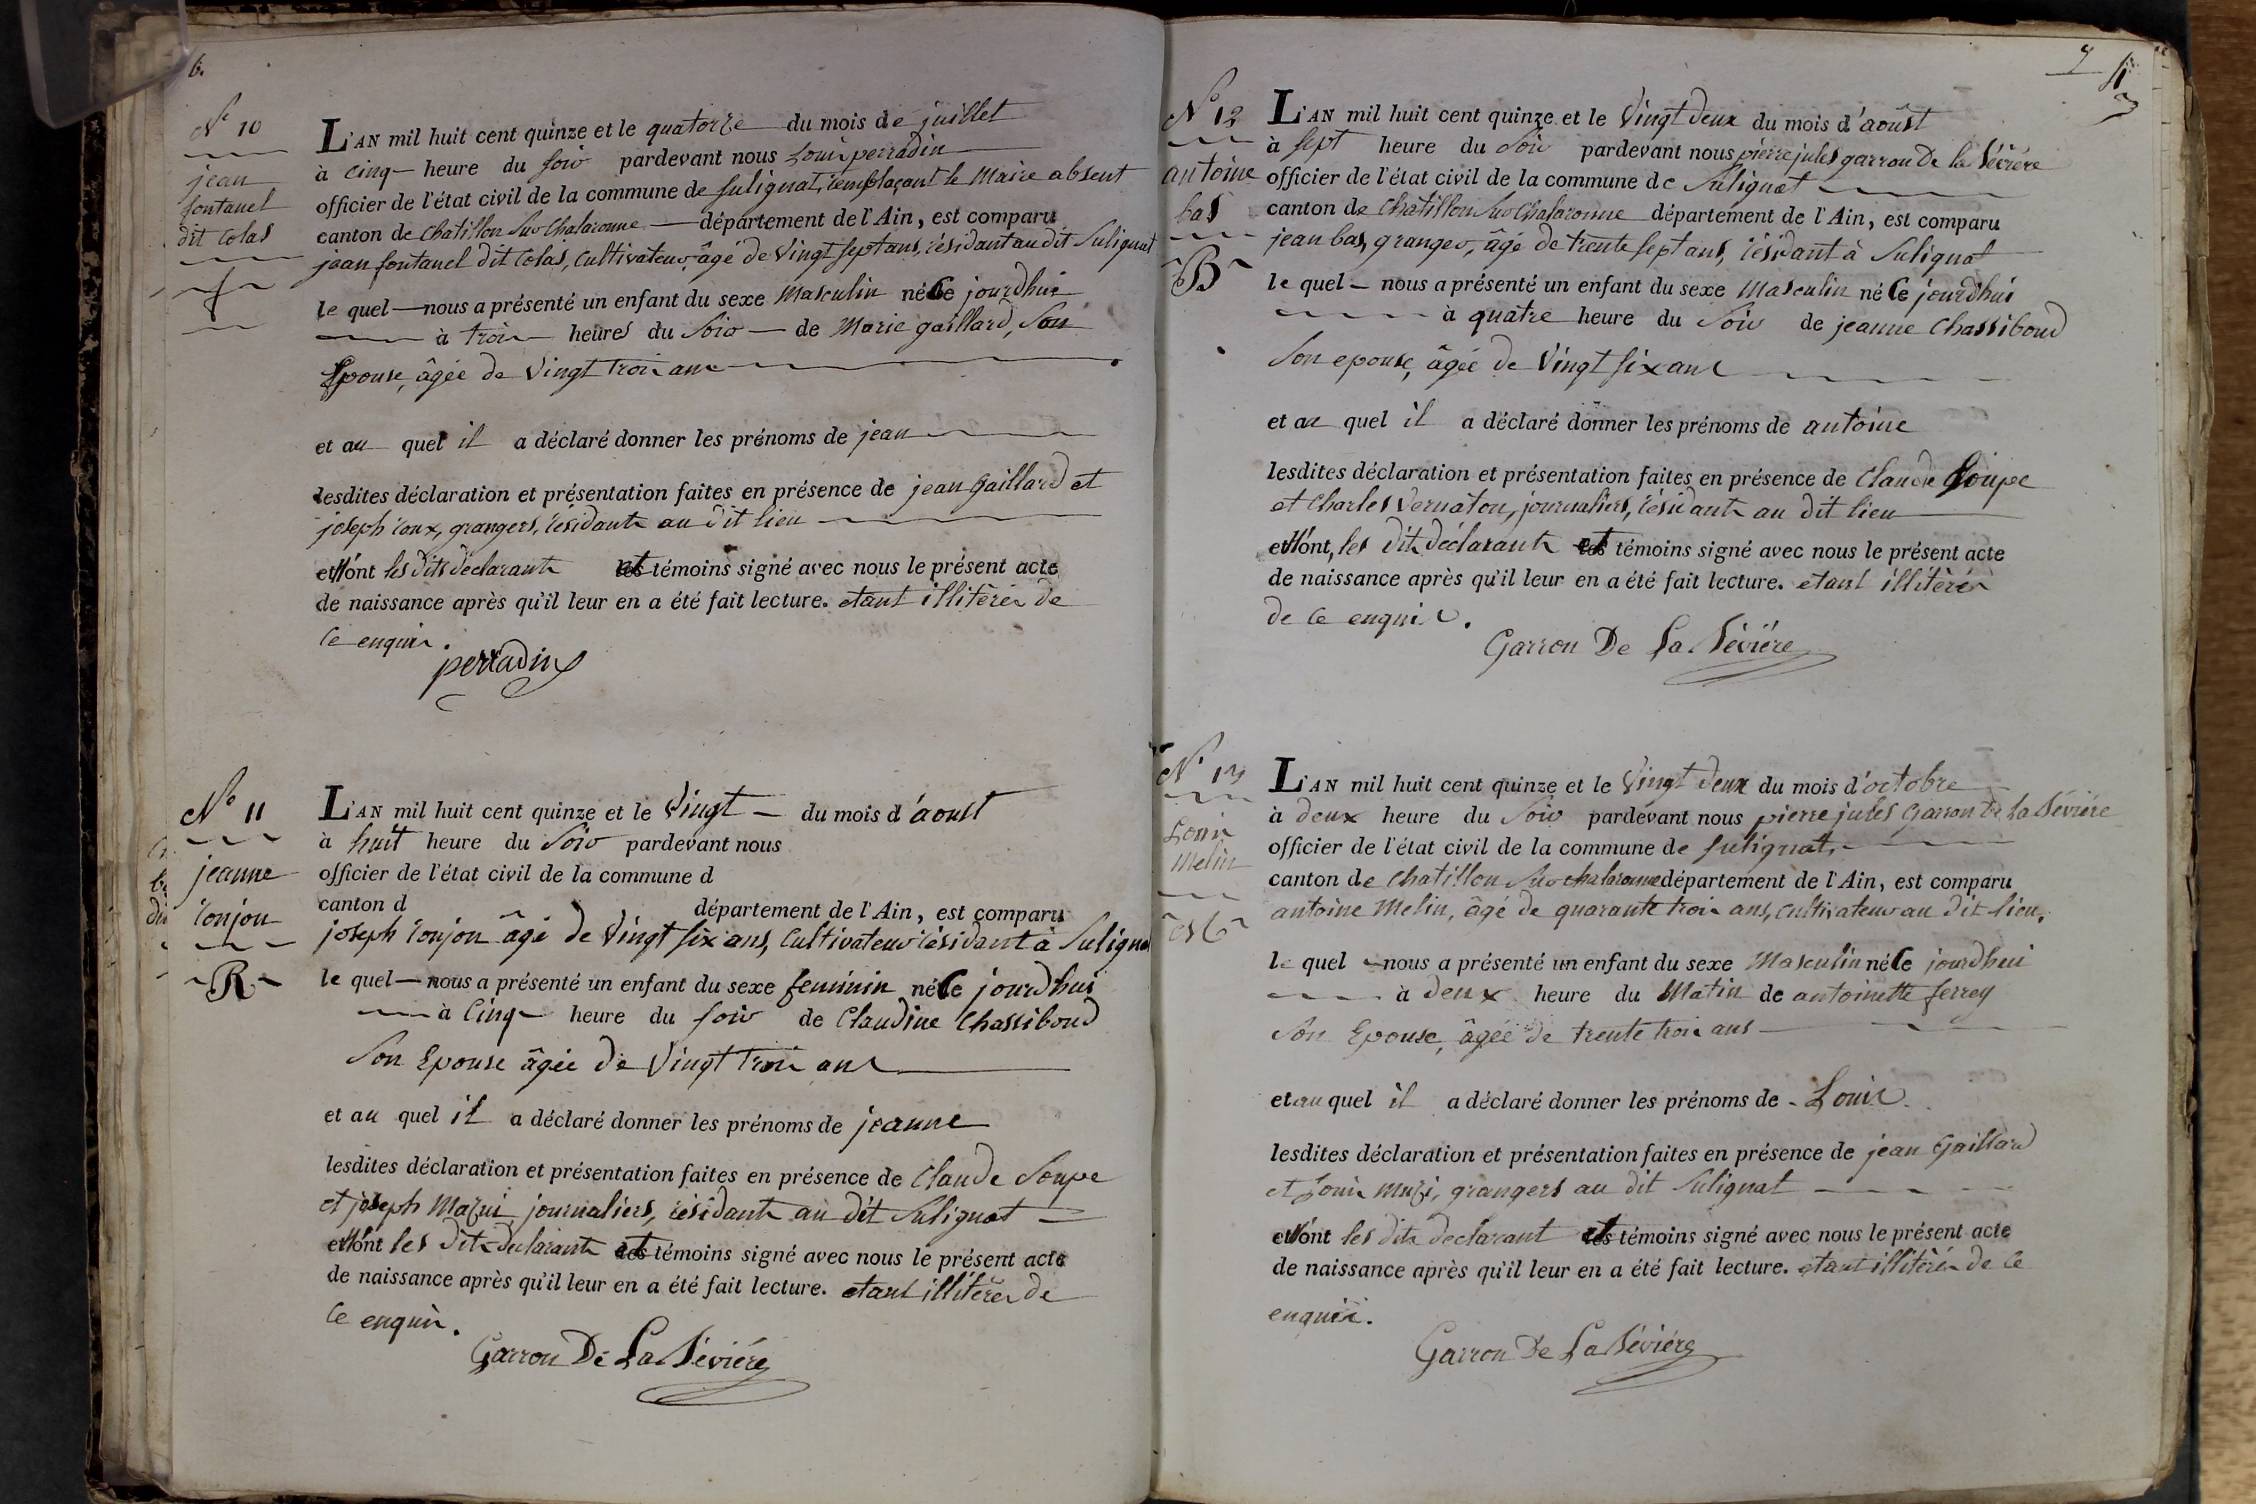 6.
N° 10
jean
fontanel
dit Colas
f
L'AN mil huit cent quinze et le quatorze du mois de juillet
à cinq heure du soir pardevant nous Louis perradin
officier de l'état civil de la commune de Sulignat, remplaçant le Maire absent
canton de Chatillon sur Chalaronne département de l'Ain, est comparu
jean fontanel dit Colas, Cultivateur, âgé de Vingt sept ans, résidant au dit Sulignat
le quel nous a présenté un enfant du sexe Masculin né Ce jourdhui
à trois heures du Soir de Marie gaillard, Son
Epouse, âgée de Vingt trois ans
et au quel il a déclaré donner les prénoms de jean
lesdites déclaration et présentation faites en présence de jean Gaillard et
joseph roux, grangers, résidants au dit lieu
et n'ont les dits déclarants et témoins signé avec nous le présent acte
de naissance après qu'il leur en a été fait lecture. etant illitérés de
Ce enquis.
perradin
N° 11
jeanne
Conjon
R
L'AN mil huit cent quinze et le Vingt du mois d'aoust
à huit heure du Soir pardevant nous
officier de l'état civil de la commune d
canton d département de l'Ain, est comparu
joseph Conjon âgé de Vingt six ans, Cultivateur résidant à Sulignat
le quel nous a présenté un enfant du sexe feminin né Ce jourdhui
à Cinq heure du soir de Claudine Chassiboud
Son Epouse âgée de Vingt trois ans
et au quel il a déclaré donner les prénoms de jeanne
lesdites déclaration et présentation faites en présence de Claude Soupe
et joseph Mazui, journaliers, résidants au dit Sulignat
et n'ont les dits declarants et témoins signé avec nous le présent acte
de naissance après qu'il leur en a été fait lecture. etant illitérés de
Ce enquis.
Garron De La Séviére
N° 12
antoine
bas
B
L'AN mil huit cent quinze et le Vingt deux du mois d'aoûst
à sept heure du Soir pardevant nous pierre jules garron De la Séviére
officier de l'état civil de la commune de Sulignat
canton de Chatillon Sur Chalaronne département de l'Ain, est comparu
jean bas, granger, âgé de trente sept ans, résidant à Sulignat
le quel nous a présenté un enfant du sexe Masculin né Ce jourdhui
à quatre heure du Soir de jeanne Chassiboud
Son epouse, âgée de Vingt six ans
et au quel il a déclaré donner les prénoms de antoine
lesdites déclaration et présentation faites en présence de Claude Soupe
et Charles Vernaton, journaliers, résidants au dit lieu
et n'ont, les dits déclarants et témoins signé avec nous le présent acte
de naissance après qu'il leur en a été fait lecture. etant illitérés
de Ce enquis.
Garron De La Séviére
N° 13
Louis
Melin
L'AN mil huit cent quinze et le Vingt deux du mois d'octobre
à deux heure du Soir pardevant nous pierre jules Garron De la Séviére
officier de l'état civil de la commune de Sulignat,
canton de Chatillon Sur Chalaronne département de l'Ain, est comparu
antoine Melin, âgé de quarante trois ans, cultivateur au dit lieu,
le quel nous a présenté un enfant du sexe Masculin né Ce jourdhui
à deux heure du Matin de antoinette ferrey
Son Epouse, âgée de trente trois ans
et au quel il a déclaré donner les prénoms de Louis
lesdites déclaration et présentation faites en présence de jean Gaillard
et Louis muzi, grangers au dit Sulignat
et n'ont les dits declarant et témoins signé avec nous le présent acte
de naissance après qu'il leur en a été fait lecture. etant illitérés de Ce
enquis.
Garron De La Séviére